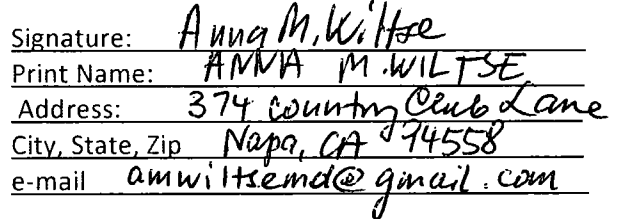 Signature: Anna M. Wiltse
Print Name: ANNA M. WILTSE
Address: 374 Country Club Lane
City, State, Zip Napa, CA 94558
e-mail amwiltsemd@gmail.com